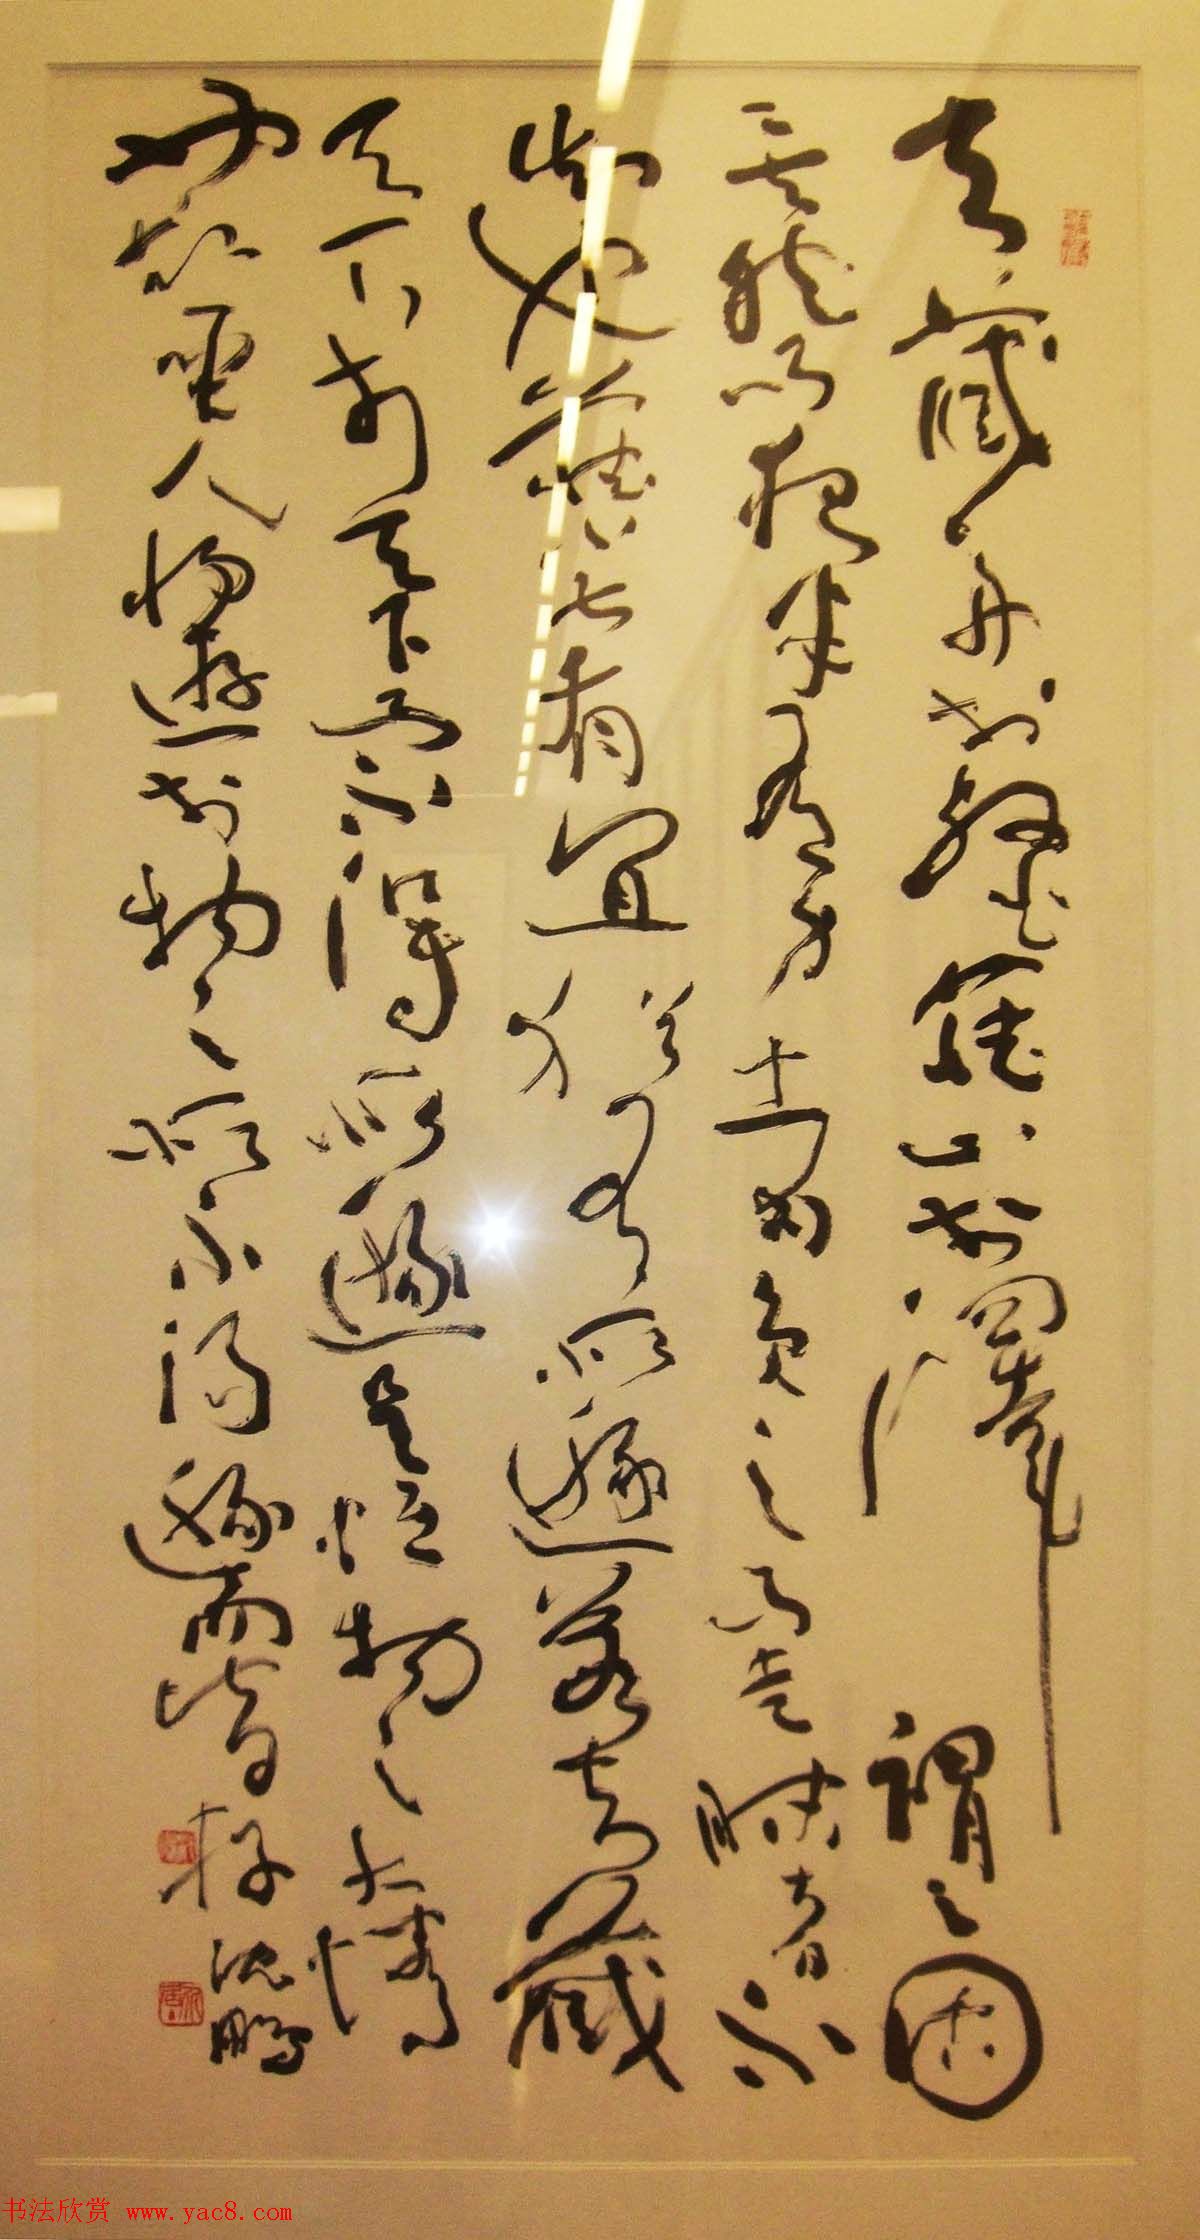 夫藏舟於壑藏山於澤謂之固
矣然而夜半有力者負之而走昧者不
知也藏小大有宜猶有所遯若夫藏
天下於天下而不得所遯是恒物之大情
也故聖人將遊於物之所不得遯而皆存 沈鵬
书法欣赏 www.yac8.com